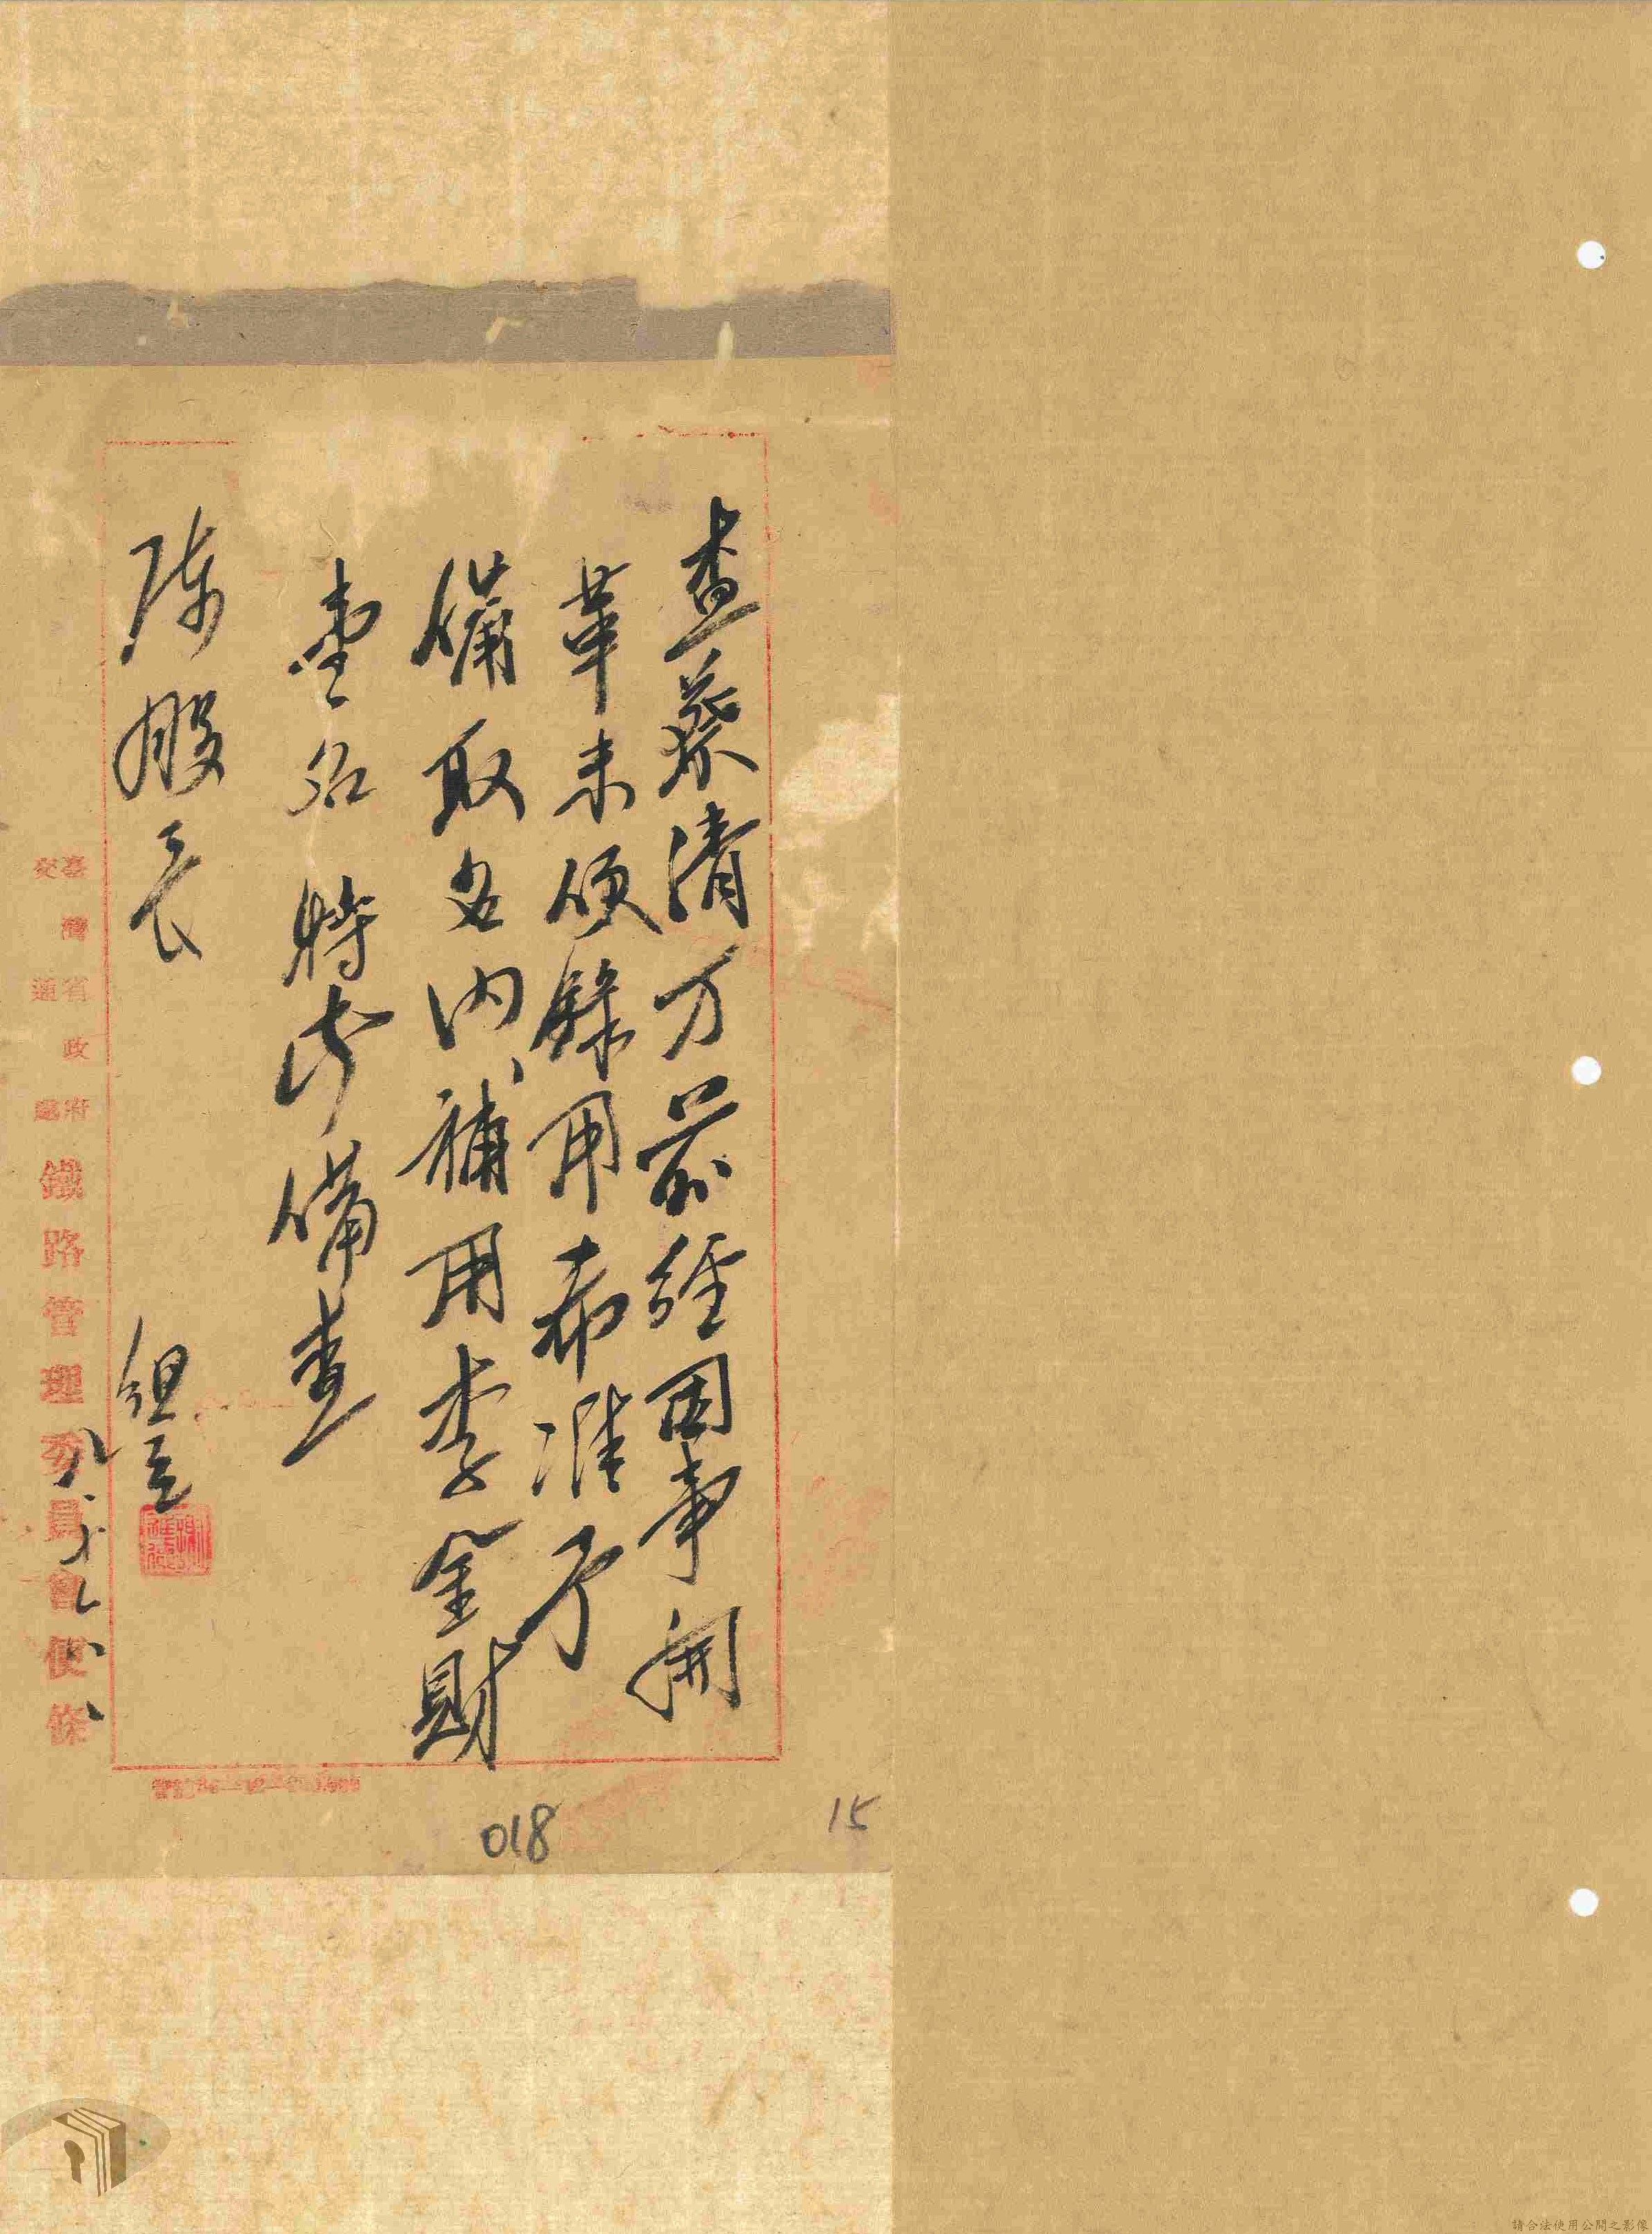 查蔡清方前經因事開
革未便錄用茲准予
備取名內補用李金財
壹名特此備查
陳股長
組
臺灣省政府
交通處
鐵路管理委員會便條
018
15
請合法使用公開之影像